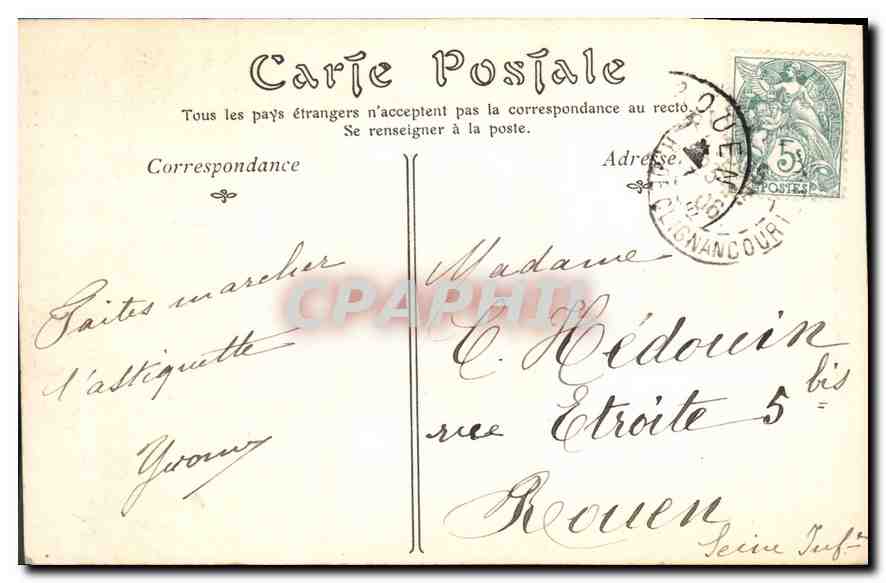 Carte Postale
Tous les pays étrangers n'acceptent pas la correspondance au recto.
Se renseigner à la poste.
Correspondance
Adresse
Faites marcher
l'astiquette
Yvonne
Madame
C. Hédouin
rue Etroite 5 bis
Rouen
Seine Infre
ROUEN
06
CLIGNANCOURT
5c
POSTES
CPAPHIL